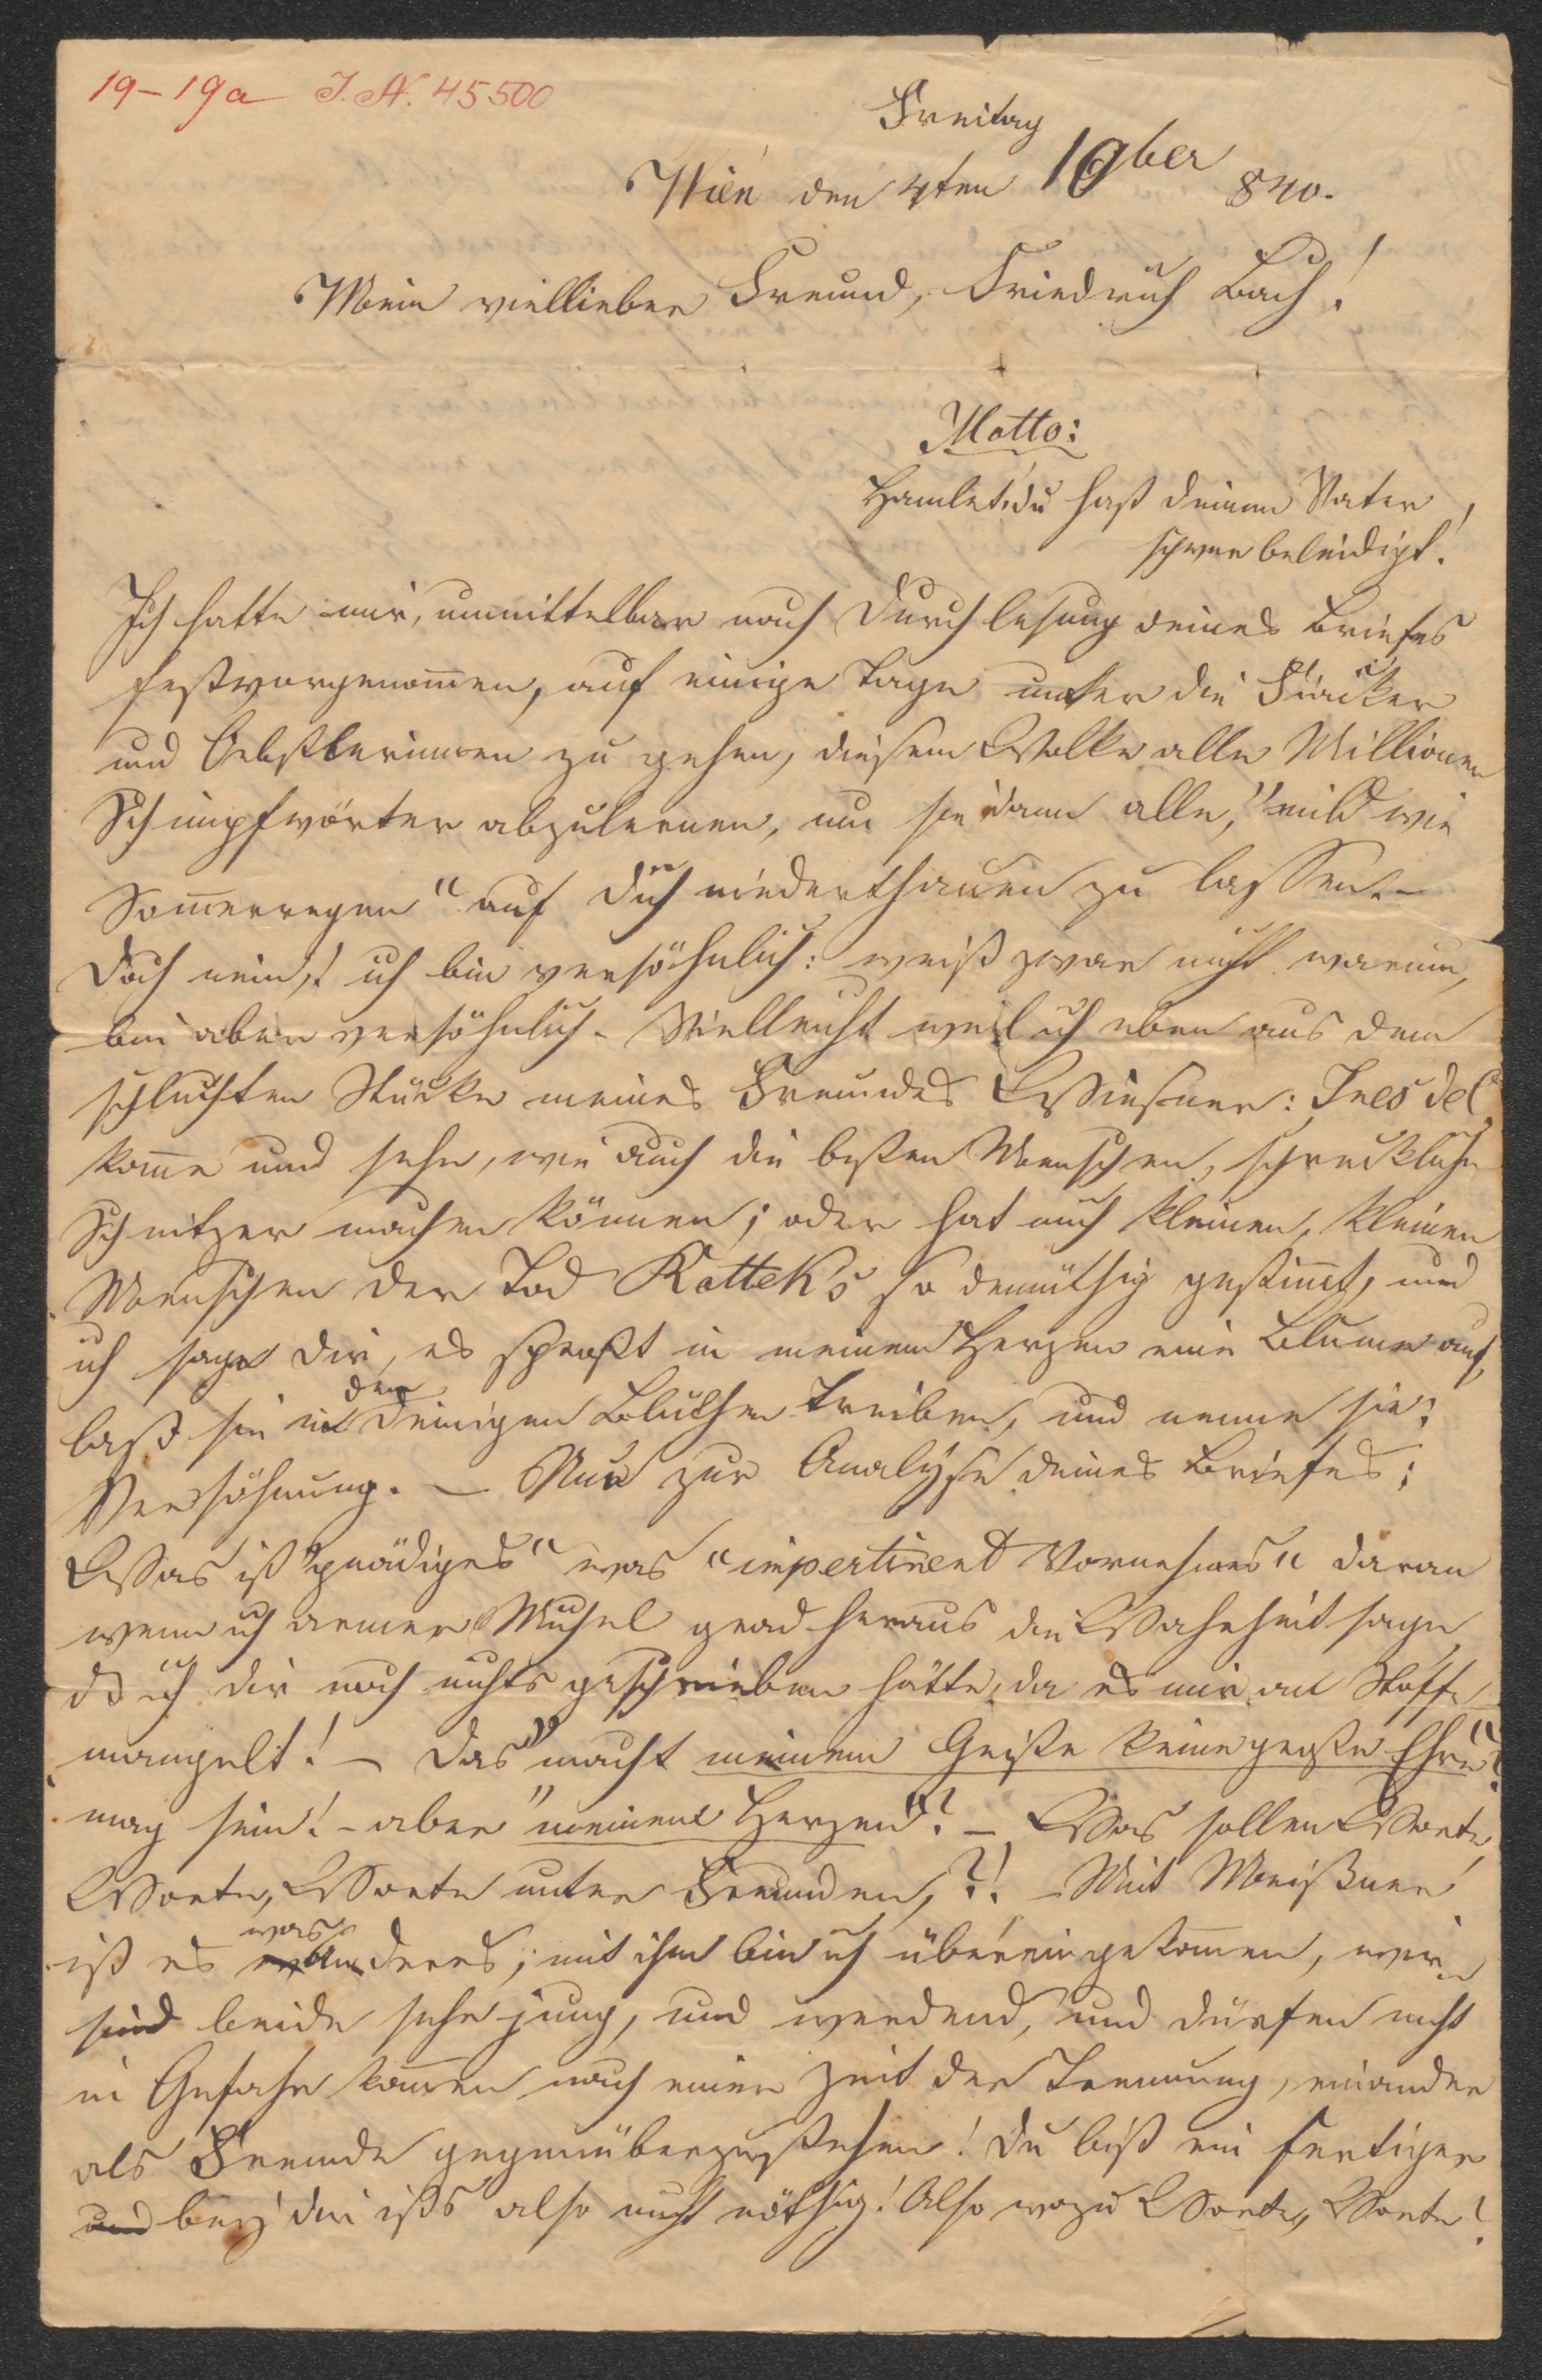 19-19a J. N. 45500
Freitag
Wien den 4ten 10ber 840.
Mein viellieber Freund, Friedrich Bach!
Motto:
Hamlet, du hast deinen Vater
schwer beleidigt!
Ich hatte mir, unmittelbar nach Durchlesung deines Briefes
festvorgenom̅en, auf einige Tage unter die Fiacker
und Oebstlerinnen zu gehen, diesem Volke alle Millionen
Schimpfwörter abzulernen, um sie dann alle, "mild wie
Som̅erregen" auf dich niederthauen zu lassen. –
Doch nein! ich bin versöhnlich: weiß zwar nicht warum,
bin aber versöhnlich. Vielleicht weil ich eben aus dem
schlechten Stücke meines Freundes : Ines de C
kom̅e und sehe, wie auch die besten Menschen, schreckliche
Schnitzer machen können; oder hat mich kleinen, kleinen
Menschen der Tod Rotteks so demüthig gestim̅t, und
ich sage dir, es sproßt in meinem Herzen eine Blume auf,
laß sie in dem deinigen Blüthen treiben, und nenne sie:
Versöhnung. – Nun zur Analÿse deines Briefes:
Was ist "gnädiges" was "impertinent Vornehmes" daran
wenn ich armer Michel grad heraus die Wahrheit sage,
dß ich dir noch nichts geschrieben hätte, da es mir an Stoffe
mangelt! – Das "macht meinem Geiste keine große Ehre"?
mag sein! – aber "meinem Herzen"? – Was sollen Worte,
Worte, Worte unter Freunden,?! – Mit Meißner
ist es was anderes; mit ihm bin ich übereingekom̅en, wir
sind beide sehr jung, und werdend, und dürfen nicht
in Gefahr kom̅en nach einer Zeit der Trennung, einander
als Fremde gegenüberzustehen! Du bist ein fertiger
und beÿ dir ists also nicht nöthig! Also wozu Worte, Worte?